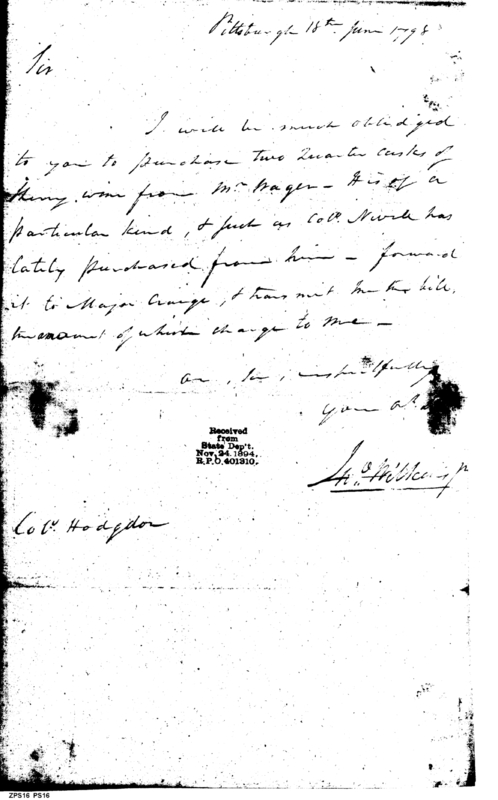 Pittsburgh 18th June 1798
Sir
I will be much oblidged
to you to purchase two Quarter casks of
Sherry wine from Mr Wager - It is of a
particular kind, & such as Colo. Nevill has
lately purchased from him - forward
it to Major Craige, & transmit me the bill,
the amount of which charge to me -
am, Sir, respectfully
your
Jno. Wilkins Jr
Received
from
State Dep't.
Nov. 24. 1894.
R.P.O. 401310.
Colo. Hodgdon
ZPS16 PS16